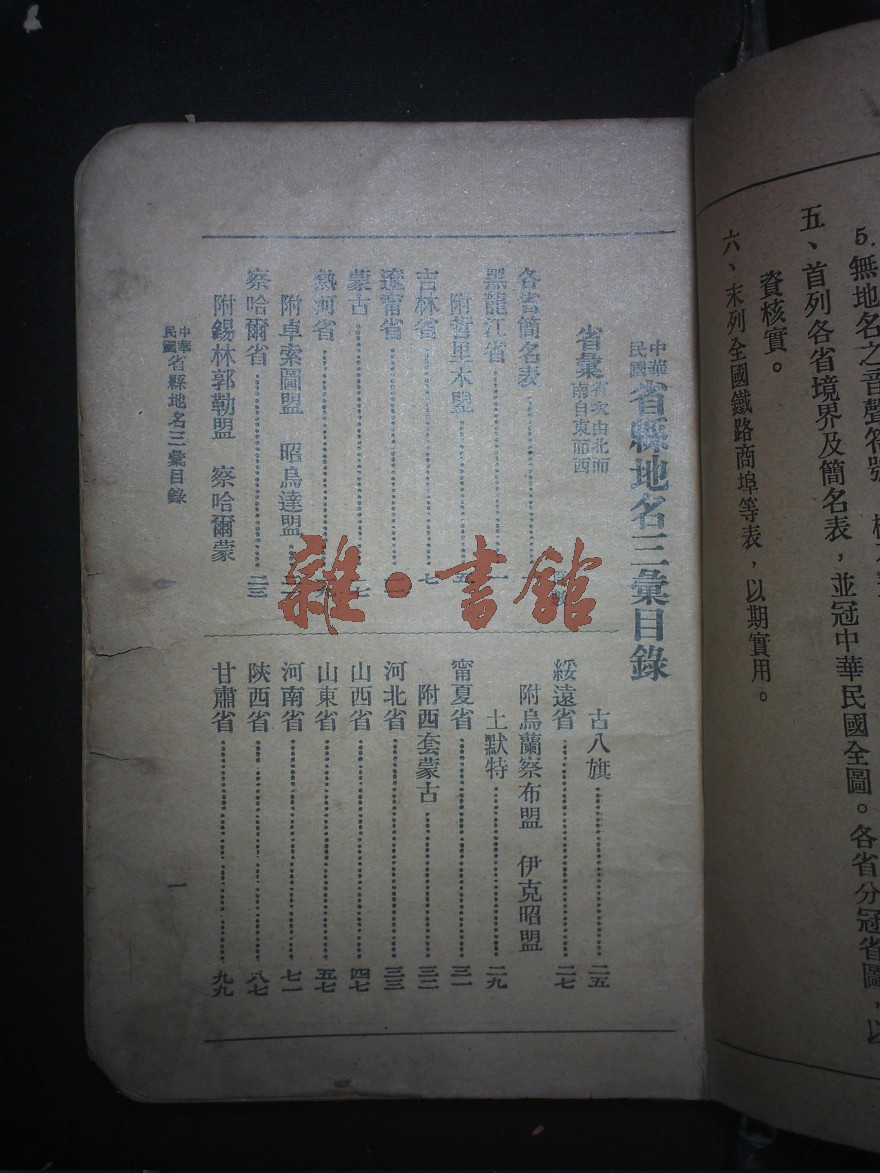 5.無地名之音聲符號
五、首列各省境界及簡名表，並冠中華民國全圖。各省分冠省圖，以
資核實。
六、末列全國鐵路商埠等表，以期實用。
中華民國省縣地名三彙目錄
省彙 省次由北而南自東而西
各省簡名表
黑龍江省……一
附哲里木盟……五
吉林省……七
遼寧省
蒙古……七
熱河省
附卓索圖盟 昭烏達盟
察哈爾省……二三
附錫林郭勒盟 察哈爾蒙
古八旗……二五
綏遠省……二七
附烏蘭察布盟 伊克昭盟
土默特……二九
甯夏省……三一
附西套蒙古……三二
河北省……三三
山西省……四七
山東省……五七
河南省……七一
陝西省……八七
甘肅省……九九
中華民國省縣地名三彙目錄
一
雜·書館